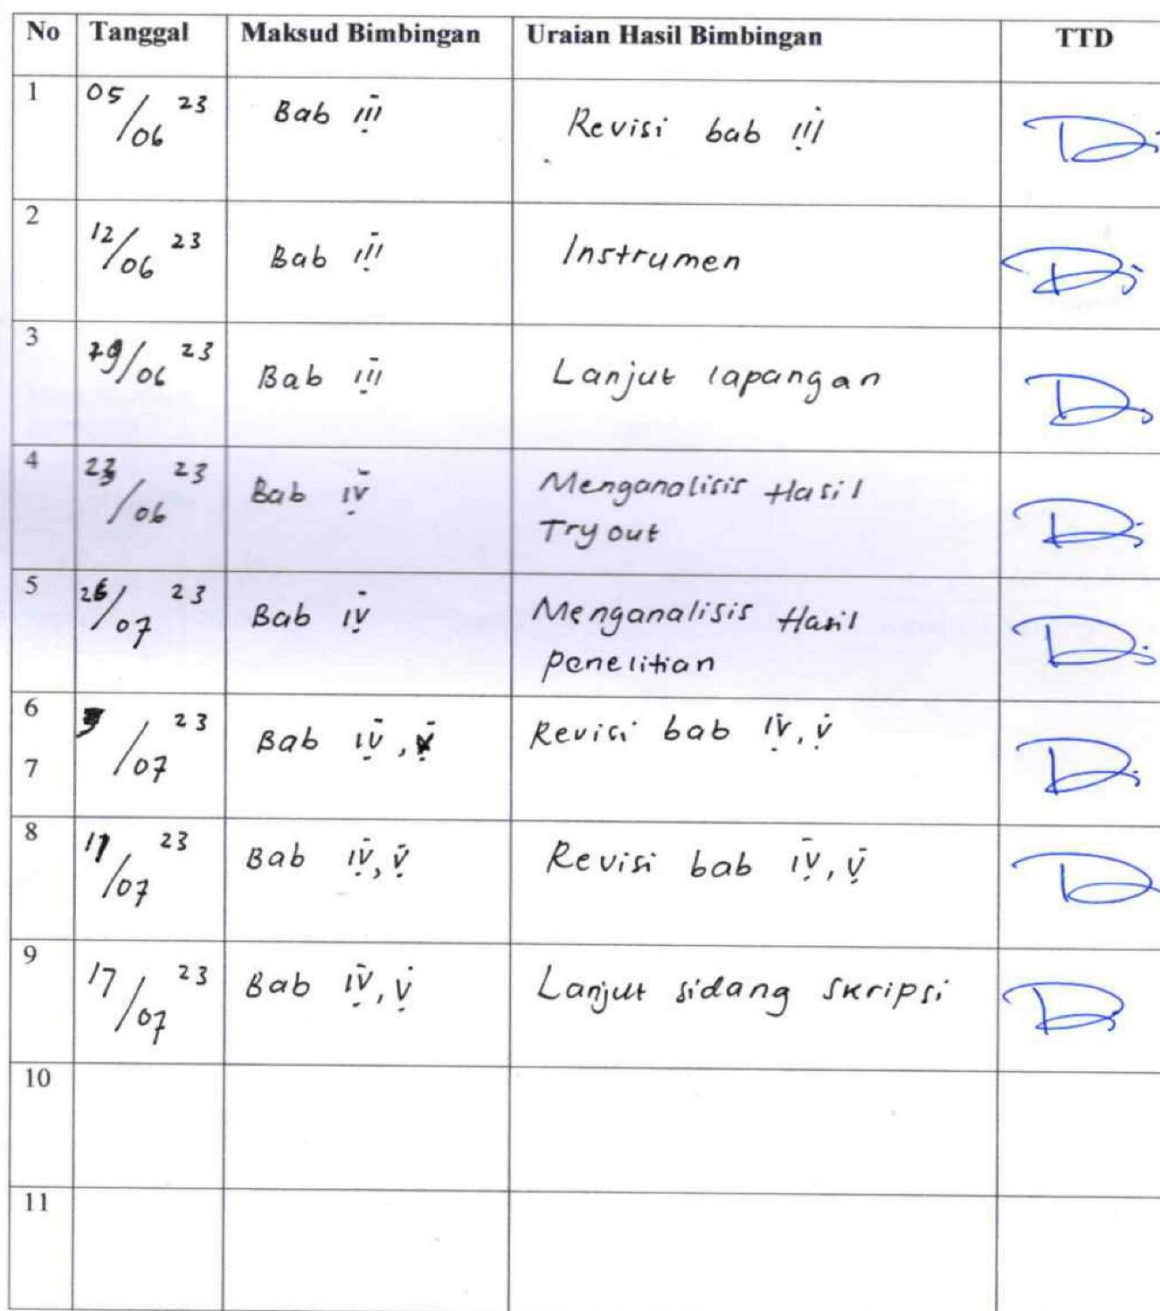 No Tanggal Maksud Bimbingan Uraian Hasil Bimbingan TTD
1 05/06 23 Bab III Revisi bab III
2 12/06 23 Bab III Instrumen
3 /06 23 Bab III Lanjut lapangan
4 23/06 23 Bab IV Menganalisis Hasil
Tryout
5 26/07 23 Bab IV Menganalisis Hasil
penelitian
6 /07 23 Bab IV, V Revisi bab IV, V
7
8 11/07 23 Bab IV, V Revisi bab IV, V
9 17/07 23 Bab IV, V Lanjut sidang skripsi
10
11